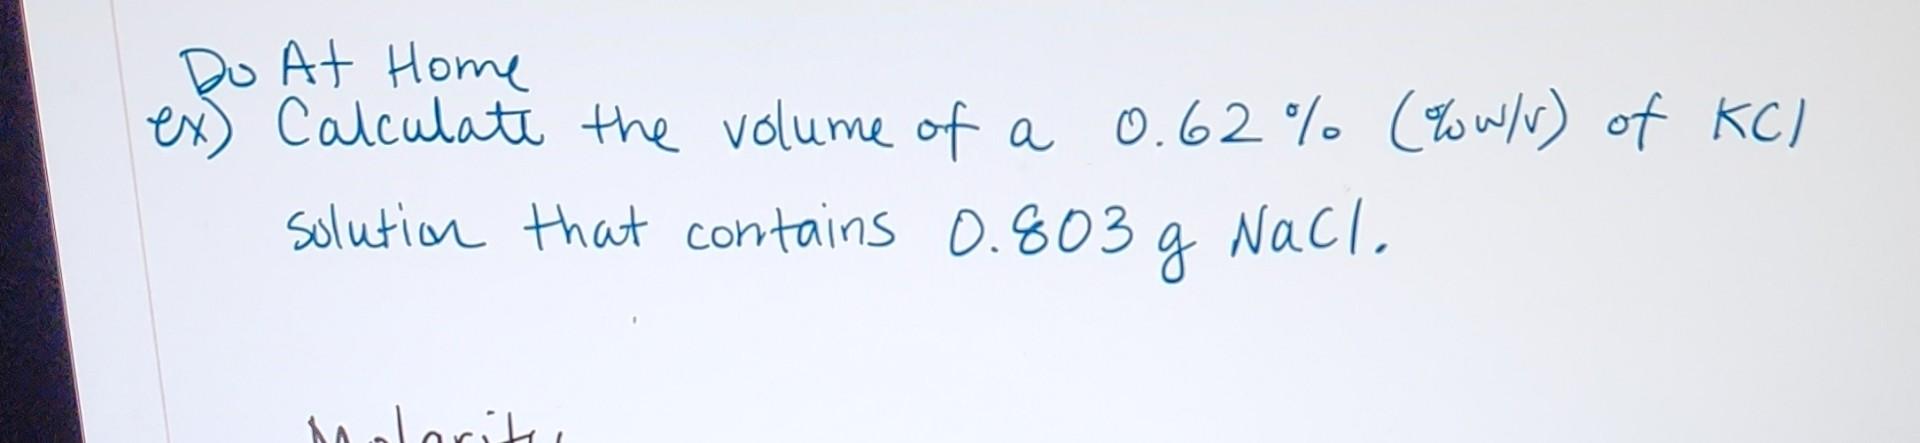 Do At Home
ex) Calculate the volume of a 0.62% (%w/v) of KCl
solution that contains 0.803 g NaCl.
Molarity